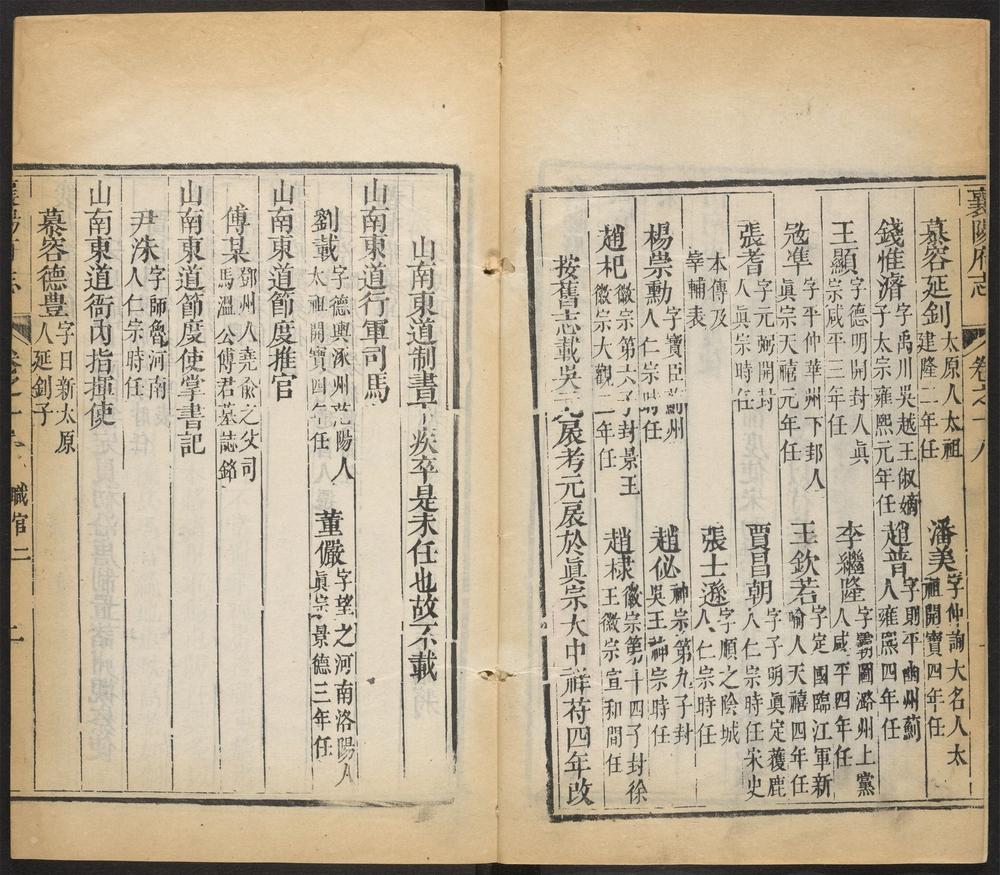 襄陽府志 卷之十八
慕容延釗 太原人太祖建隆二年任
潘美 字仲詢大名人太祖開寶四年任
錢惟濟 字禹川吳越王俶嫡子太宗雍熙元年任
趙普 字則平幽州薊人雍熙四年任
王顯 字德明開封人眞宗咸平三年任
李繼隆 字霸圖潞州上黨人咸平四年任
寇準 字平仲華州下邽人眞宗天禧元年任
王欽若 字定國臨江軍新喻人天禧四年任
張耆 字元弼開封人眞宗時任
賈昌朝 字子明眞定獲鹿人仁宗時任宋史
本傳及宰輔表
張士遜 字順之陰城人仁宗時任
楊崇勳 字寶臣薊州人仁宗時任
趙佖 神宗第九子封吳王神宗時任
趙杞 徽宗第六子封景王徽宗大觀二年任
趙棣 徽宗第十四子封徐王徽宗宣和間任
按舊志載吳元扆考元扆於眞宗大中祥符四年改
山南東道制書下疾卒是未任也故不載
山南東道行軍司馬
劉載 字德輿涿州范陽人太祖開寶四年任
董儼 字望之河南洛陽人眞宗景德三年任
山南東道節度推官
傅某 鄧州人堯俞之父司馬溫公傅君墓誌銘
山南東道節度使掌書記
尹洙 字師魯河南人仁宗時任
山南東道衙內指揮使
慕容德豐 字日新太原人延釗子
職官二 二